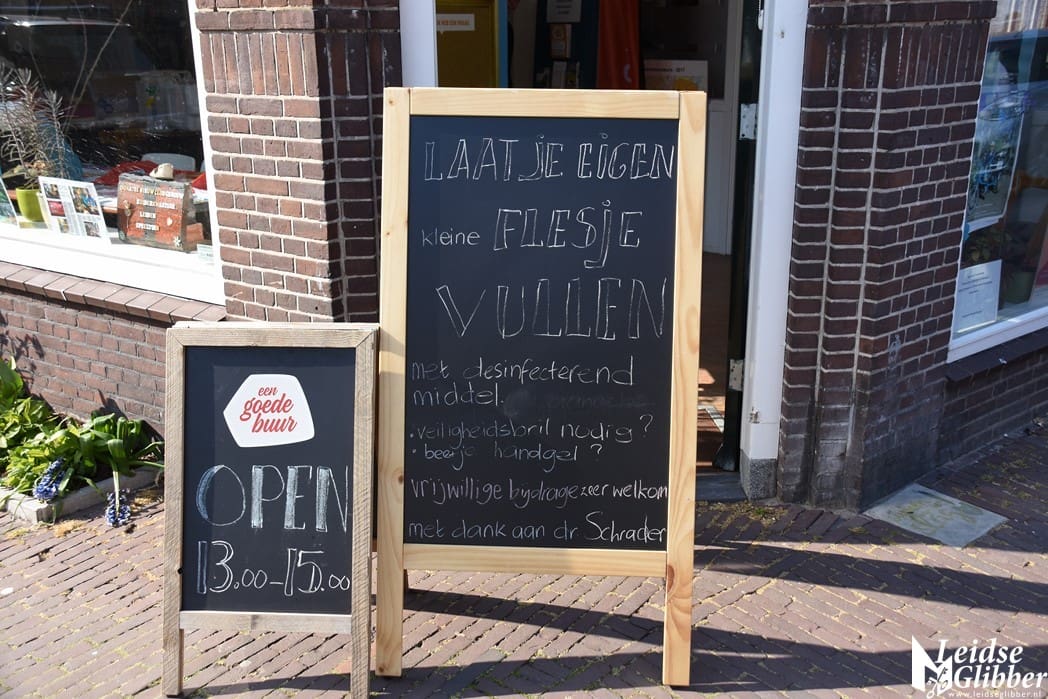 LAAT JE EIGEN
kleine FLESJE
VULLEN
met desinfecterend
middel.
• veiligheidsbril nodig?
• beetje handgel?
vrijwillige bijdrage zeer welkom
met dank aan dr. Schrader
een
goede
buur
OPEN
13.00-15.00
Leidse
Glibber
www.leidseglibber.nl